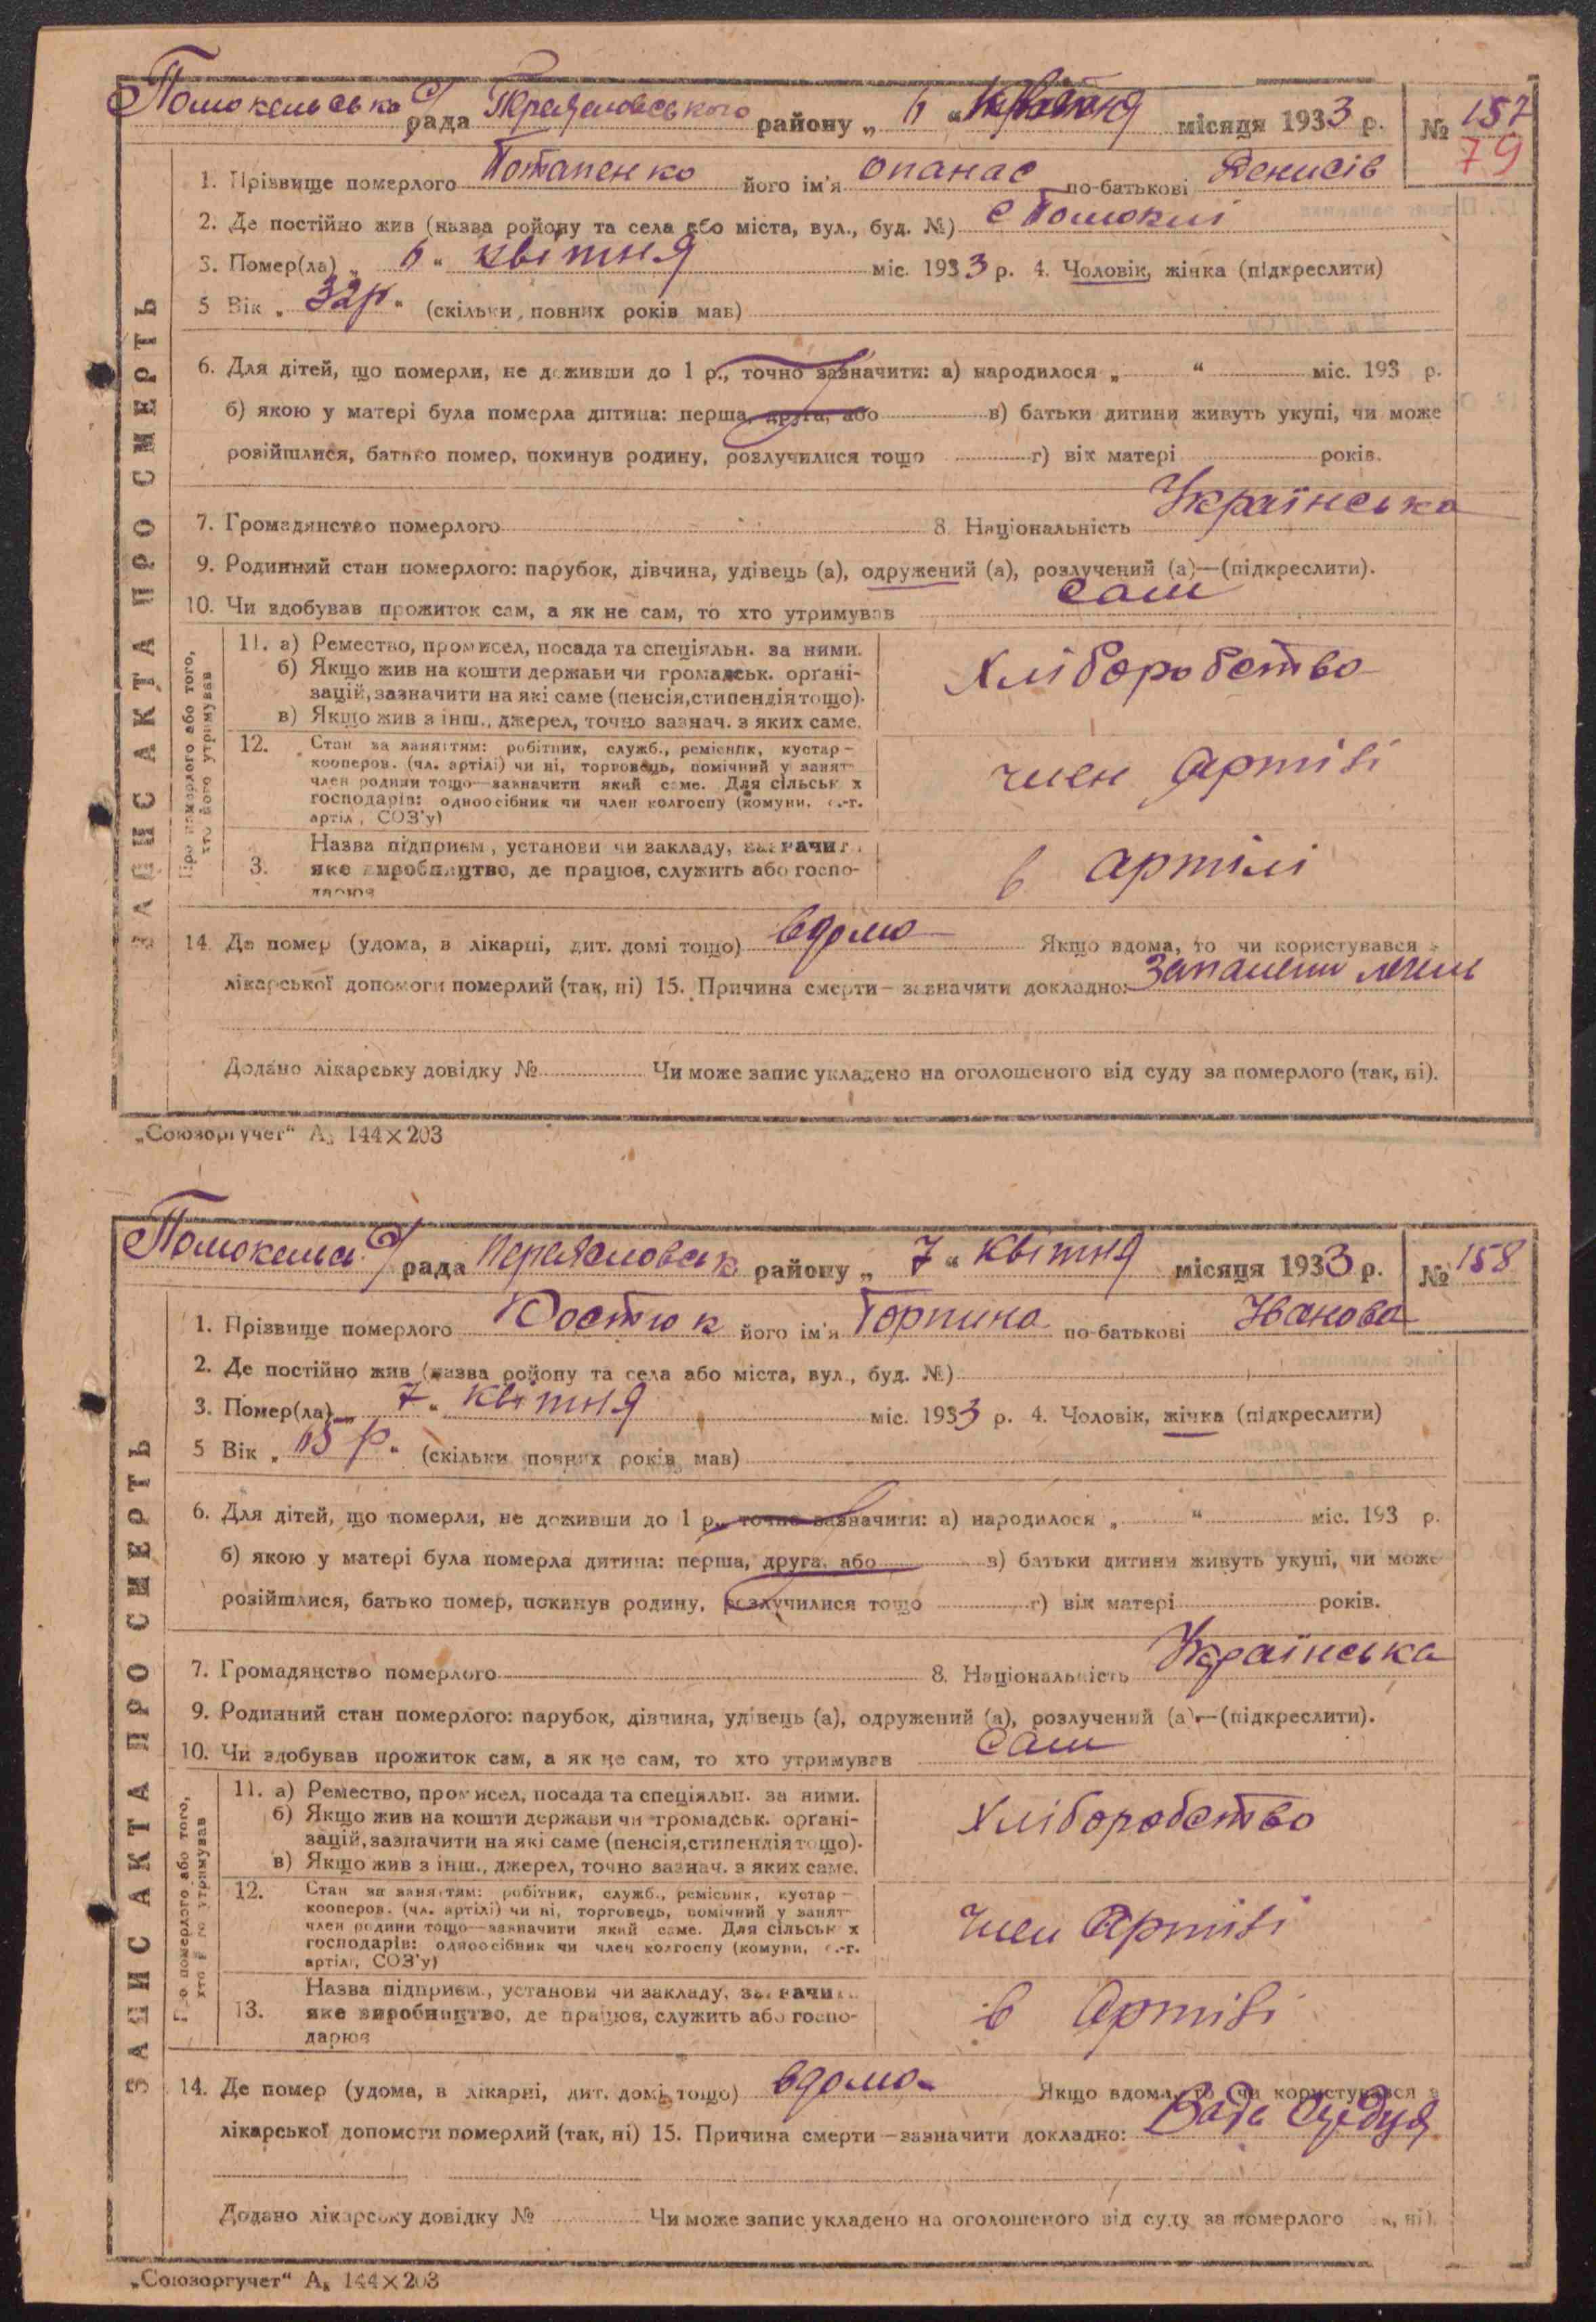 Помокельська с/рада Переяславського району „ 6 “ квітня місяця 1933 р. № 157
79
ЗАПИС АКТА ПРО СМЕРТЬ
1. Прізвище померлого Потапенко його ім'я Опанас по-батькові Денисів
2. Де постійно жив (назва ройону та села або міста, вул., буд. №) с Помоклі
3. Помер(ла) „ 6 “ квітня міс. 1933 р. 4. Чоловік, жінка (підкреслити)
5 Вік „ 32 р “ (скільки повних років мав)
6. Для дітей, що померли, не доживши до 1 р., точно зазначити: а) народилося „ “ міс. 193 р.
б) якою у матері була померла дитина: перша, друга, або в) батьки дитини живуть укупі, чи може
розійшлися, батько помер, покинув родину, розлучилися тощо г) вік матері років.
7. Громадянство померлого 8. Національність Українська
9. Родинний стан померлого: парубок, дівчина, удівець (а), одружений (а), розлучений (а)—(підкреслити).
10. Чи здобував прожиток сам, а як не сам, то хто утримував сам
Про померлого або того,
хто його утримував
11. а) Ремество, промисел, посада та спеціяльн. за ними.
б) Якщо жив на кошти держави чи громадськ. органі-
зацій, зазначити на які саме (пенсія, стипендія тощо).
в) Якщо жив з інш., джерел, точно зазнач. з яких саме.
Хліборобство
12. Стан за заняттям: робітник, служб., ремісник, кустар—
кооперов. (чл. артілі) чи ні, торговець, помічний у занят-
член родини тощо—зазначити який саме. Для сільськ х
господарів: одноосібник чи член колгоспу (комуни, с.-г.
артіл, СОЗ'у)
член артілі
3. Назва підприєм., установи чи закладу, зазначит
яке виробництво, де працює, служить або госпо-
дарює
в артілі
14. Де помер (удома, в лікарні, дит. домі тощо) вдома Якщо вдома, то чи користувався з
лікарської допомоги померлий (так, ні) 15. Причина смерти—зазначити докладно: Запалени легень
Додано лікарську довідку № Чи може запис укладено на оголошеного від суду за померлого (так, ні).
„Союзоргучет“ А₅ 144×203
Помокельс с/рада Переяславськ району „ 7 “ квітня місяця 1933 р. № 158
ЗАПИС АКТА ПРО СМЕРТЬ
1. Прізвище померлого Костюк його ім'я Горпина по-батькові Іванова
2. Де постійно жив (назва ройону та села або міста, вул., буд. №)
3. Помер(ла) „ 7 “ квітня міс. 1933 р. 4. Чоловік, жінка (підкреслити)
5 Вік „ р “ (скільки повних років мав)
6. Для дітей, що померли, не доживши до 1 р., точно зазначити: а) народилося „ “ міс. 193 р.
б) якою у матері була померла дитина: перша, друга, або в) батьки дитини живуть укупі, чи може
розійшлися, батько помер, покинув родину, розлучилися тощо г) вік матері років.
7. Громадянство померлого 8. Національність Українська
9. Родинний стан померлого: парубок, дівчина, удівець (а), одружений (а), розлучений (а)—(підкреслити).
10. Чи здобував прожиток сам, а як не сам, то хто утримував Сам
Про померлого або того,
хто його утримував
11. а) Ремество, промисел, посада та спеціяльн. за ними.
б) Якщо жив на кошти держави чи громадськ. органі-
зацій, зазначити на які саме (пенсія, стипендія тощо).
в) Якщо жив з інш., джерел, точно зазнач. з яких саме.
Хліборобство
12. Стан за заняттям: робітник, служб., ремісник, кустар—
кооперов. (чл. артілі) чи ні, торговець, помічний у занят-
член родини тощо—зазначити який саме. Для сільськ х
господарів: одноосібник чи член колгоспу (комуни, с.-г.
артілі, СОЗ'у)
член артілі
13. Назва підприєм., установи чи закладу, зазначит
яке виробництво, де працює, служить або госпо-
дарює
в артілі
14. Де помер (удома, в лікарні, дит. домі тощо) вдома Якщо вдома, то чи користувався з
лікарської допомоги померлий (так, ні) 15. Причина смерти—зазначити докладно: Вада Сердця
Додано лікарську довідку № Чи може запис укладено на оголошеного від суду за померлого ні).
„Союзоргучет“ А₅ 144×203